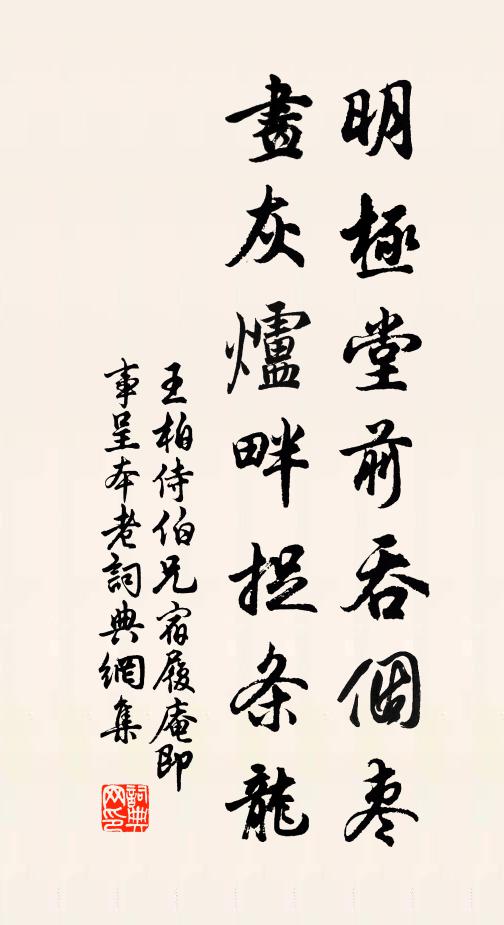 明極堂前吞個棗
畫灰爐畔捉条龍
王柏侍伯兄宿履庵即
事呈本老詞典網集
詞典网印